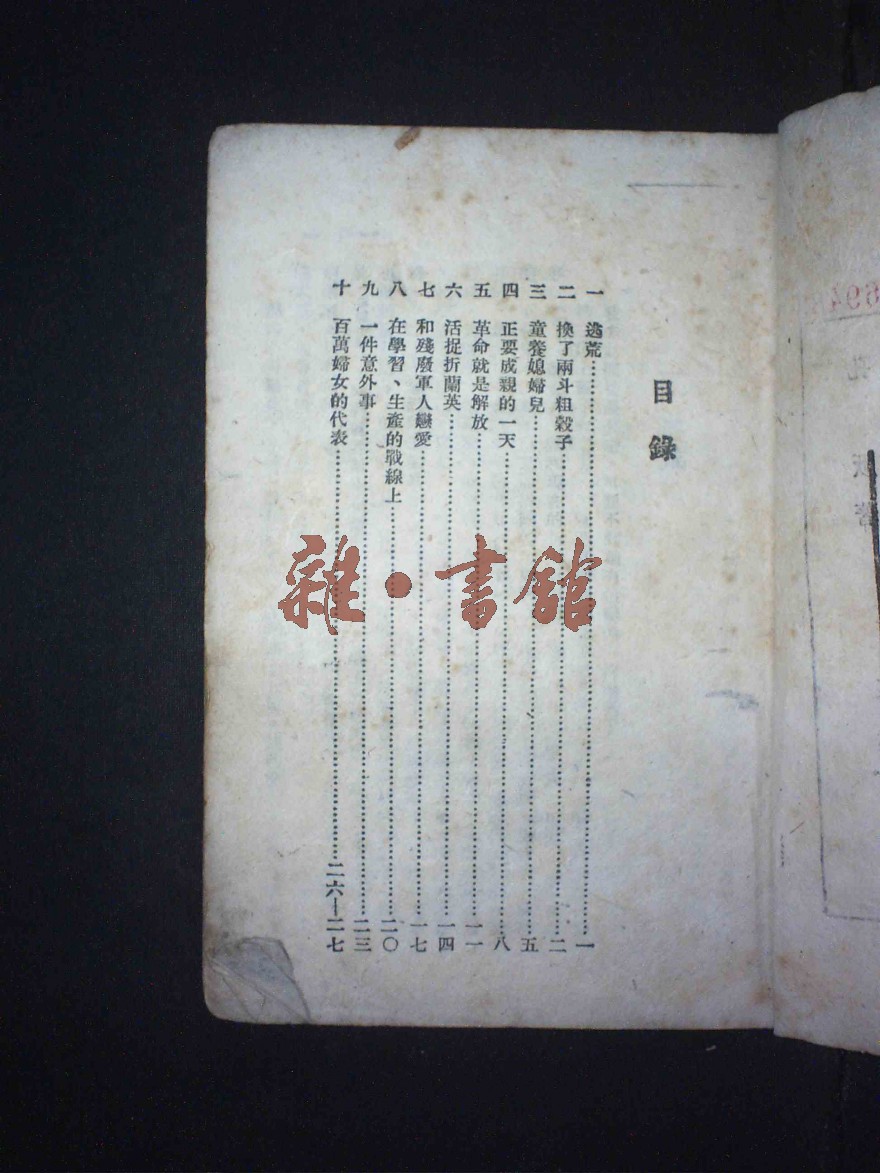 目錄
一 逃荒……一
二 換了兩斗粗穀子……二
三 童養媳婦兒……五
四 正要成親的一天……八
五 革命就是解放……一一
六 活捉折蘭英……一四
七 和殘廢軍人戀愛……一七
八 在學習、生產的戰線上……二〇
九 一件意外事……二三
十 百萬婦女的代表……二六—二七
雜·書館